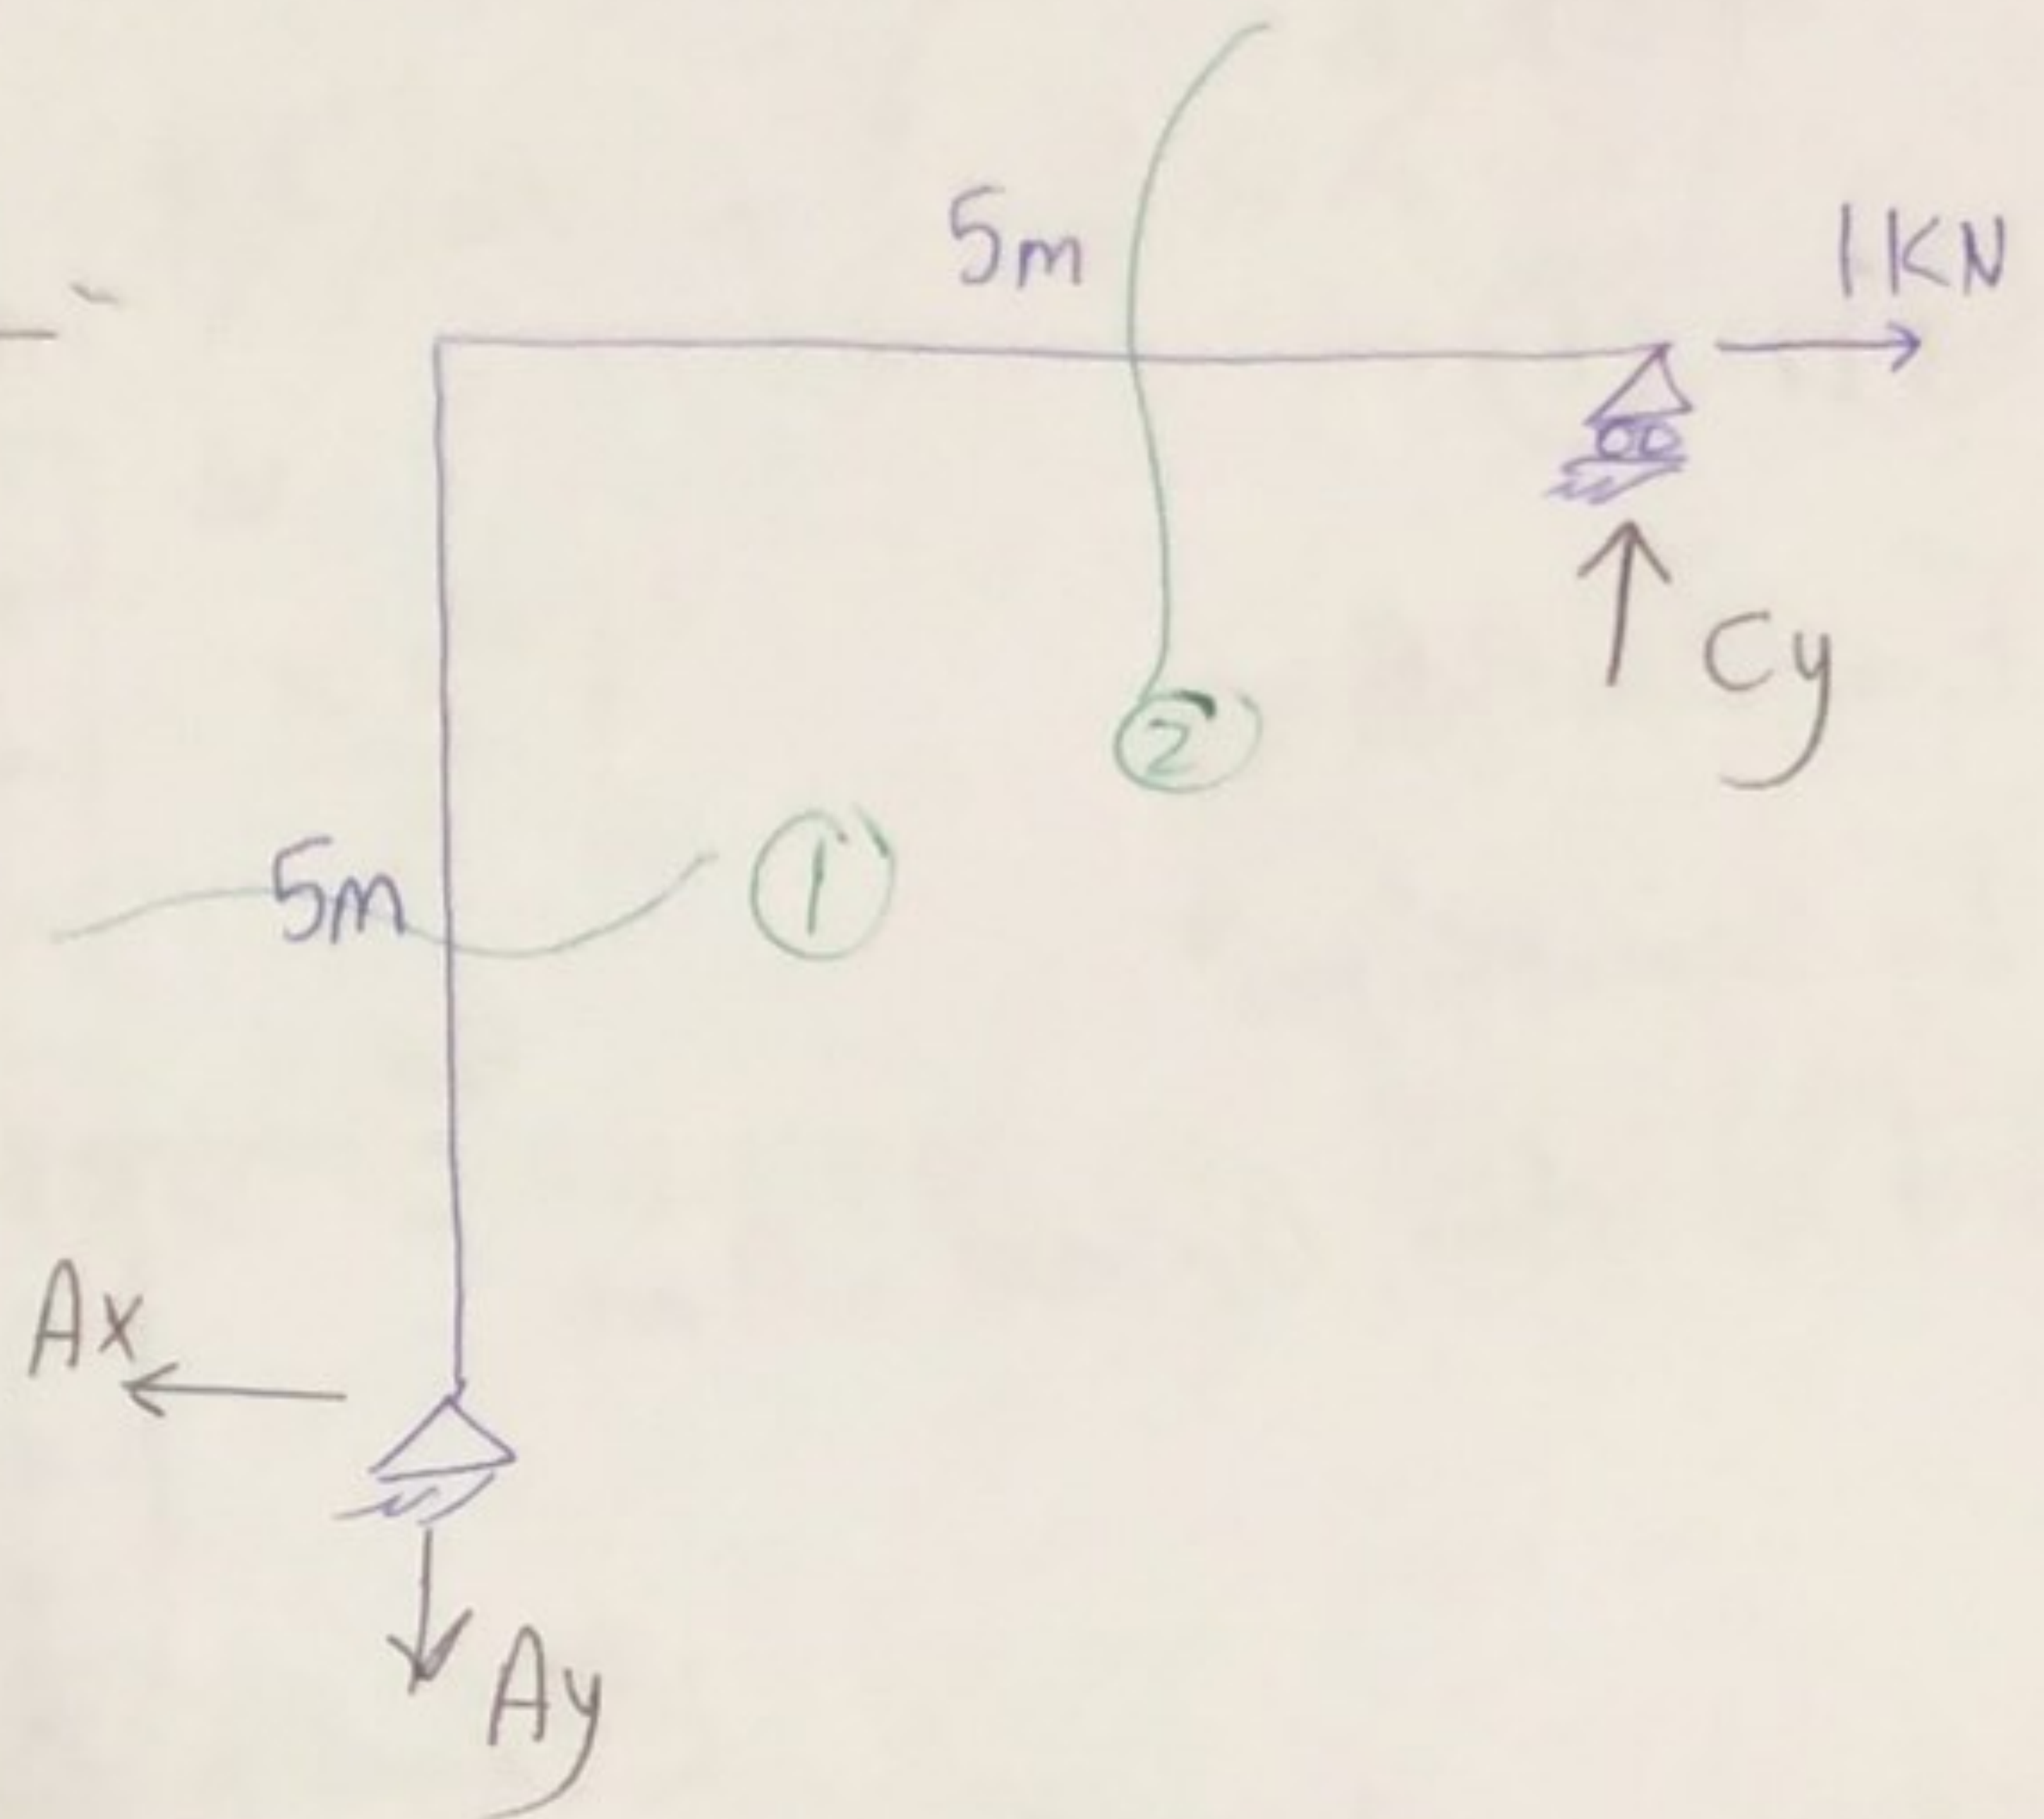 5m
1KN
Cy
2
5m
1
Ax
Ay